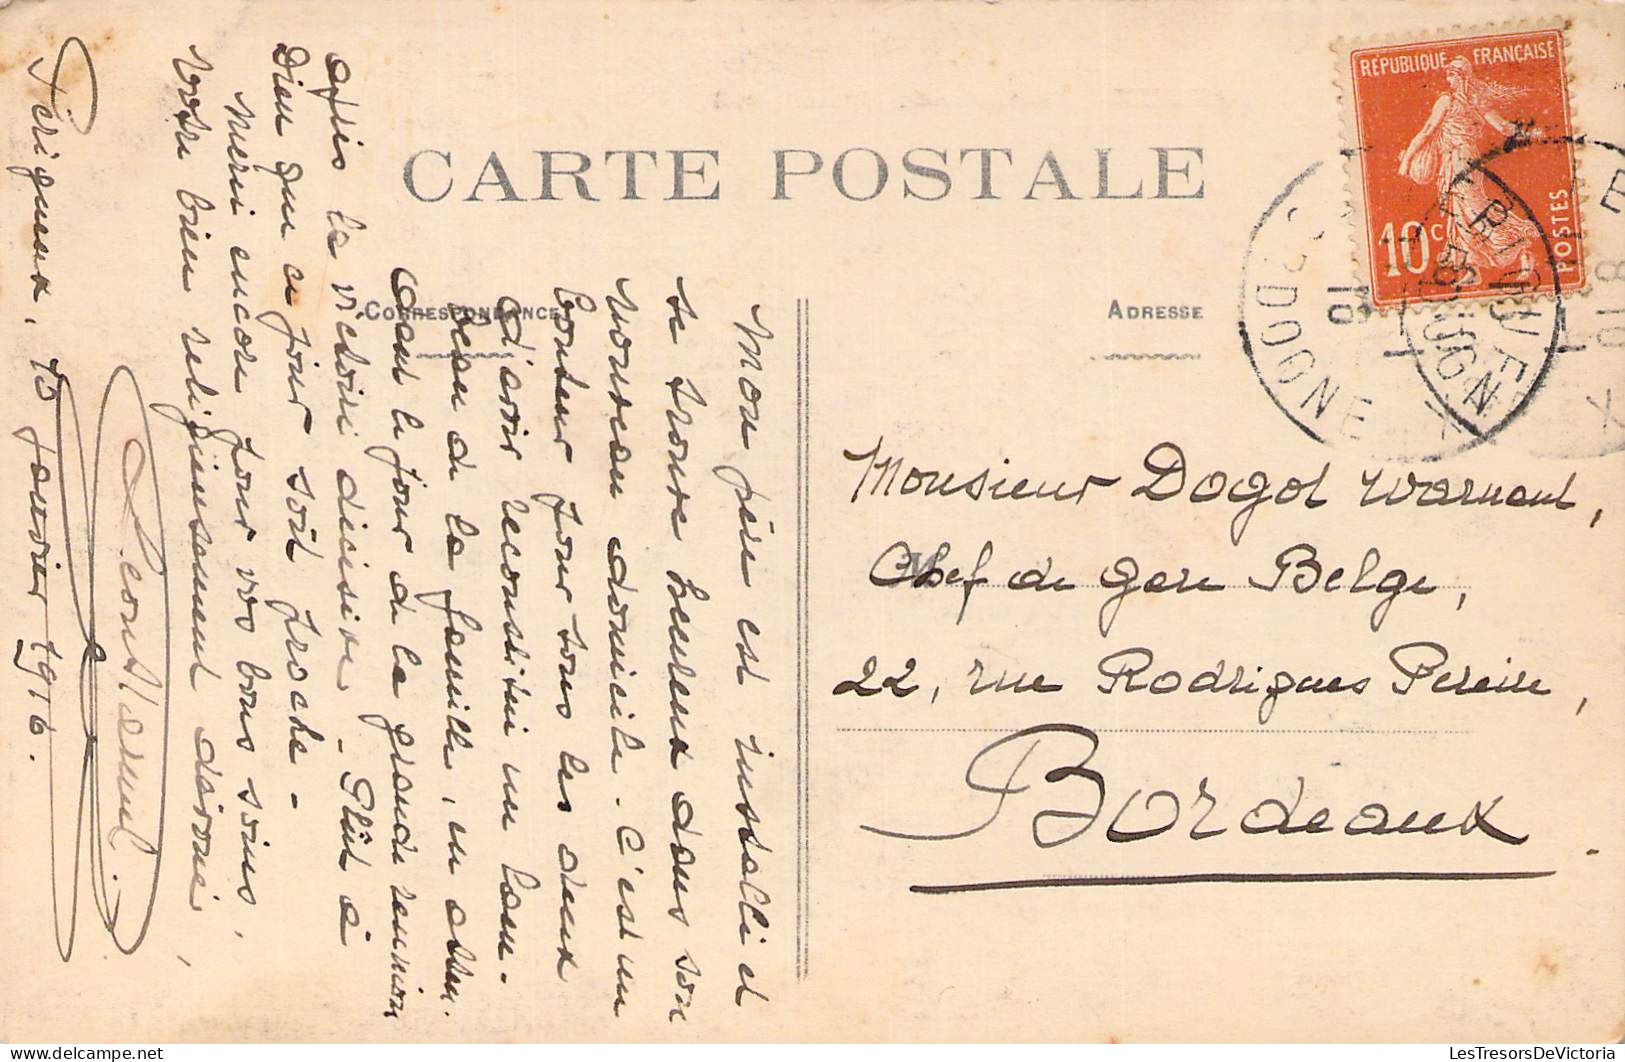 CARTE POSTALE
CORRESPONDANCE
ADRESSE
REPUBLIQUE FRANÇAISE
10 c
POSTES
Mon père est installé et
se trouve heureux dans son
nouveau domicile. C'est un
bonheur pour tous les deux
d'avoir reconstitué un beau
de la famille, en atten-
dant le jour de la grande réunion
après la victoire décisive - Plût à
Dieu que ce jour soit proche -
Merci encore pour vos bons soins,
Votre bien religieusement dévoué,
Périgueux, 13 janvier 1916.
Monsieur Dogot Warnant,
M
Chef de gare Belge,
22, rue Rodrigues Péreire,
Bordeaux
LesTresorsDeVictoria